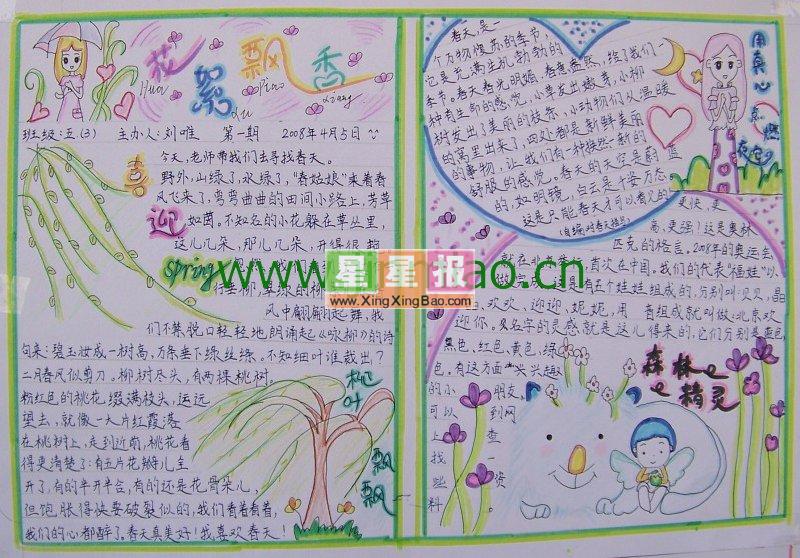 花絮飘香
Hua
Xu
piao
Xiang
班级:五(3) 主办人:刘唯 第一期 2008年4月5日
今天,老师带我们去寻找春天。
野外,山绿了,水绿了,“春姑娘”乘着春
风飞来了,弯弯曲曲的田间小路上,芳草
如茵。不知名的小花躲在草丛里,
这儿几朵,那儿几朵,开得很
喜
迎
spring
风中翩翩起舞,我
们不禁脱口轻轻地朗诵起《咏柳》的诗
句来:碧玉妆成一树高,万条垂下绿丝绦。不知细叶谁裁出?
二月春风似剪刀。柳树尽头,有两棵桃树。
粉红色的桃花,缀满枝头,远远
望去,就像一大片红霞落
在桃树上,走到近前,桃花看
得更清楚了:有五片花瓣儿全
开了,有的半开半合,有的还是花骨朵儿,
但饱胀得快要破裂似的,我们看着看着,
我们的心都醉了。春天真美好!我喜欢春天!
飘
飘
春天,是一
个万物复苏的季节,
它是充满生机勃勃的
季节。春天春光明媚,春意盎然,给了我们一
种有生命的感觉,小草发出嫩芽,小柳
树发出了美丽的枝条,小动物们从温暖
的窝里出来了,四处都是新鲜美丽
的事物,让我们有一种焕然一新的
舒服的感觉。春天的天空是蔚蓝
的,如明镜,白云是千姿万态
的
这是只能春天才可以看见的
(自编对春天描写)
用真心点燃
更快、更
高、更强!这是奥林
匹克的格言。2008年的奥运会,
首次在中国。我们的代表“福娃”以
五个娃娃组成的,分别叫:贝贝、晶
晶、欢欢、迎迎、妮妮,用
首组成就叫做:北京欢
迎你。名字的灵感就是这儿得来的,它们分别是蓝色,
黑色、红色、黄色、绿
色,有这方面兴趣
的小朋友,
可以到网
上查
找一
些资
料。
森林
精灵
www.
bao.cn
星星报
www.XingXingBao.com